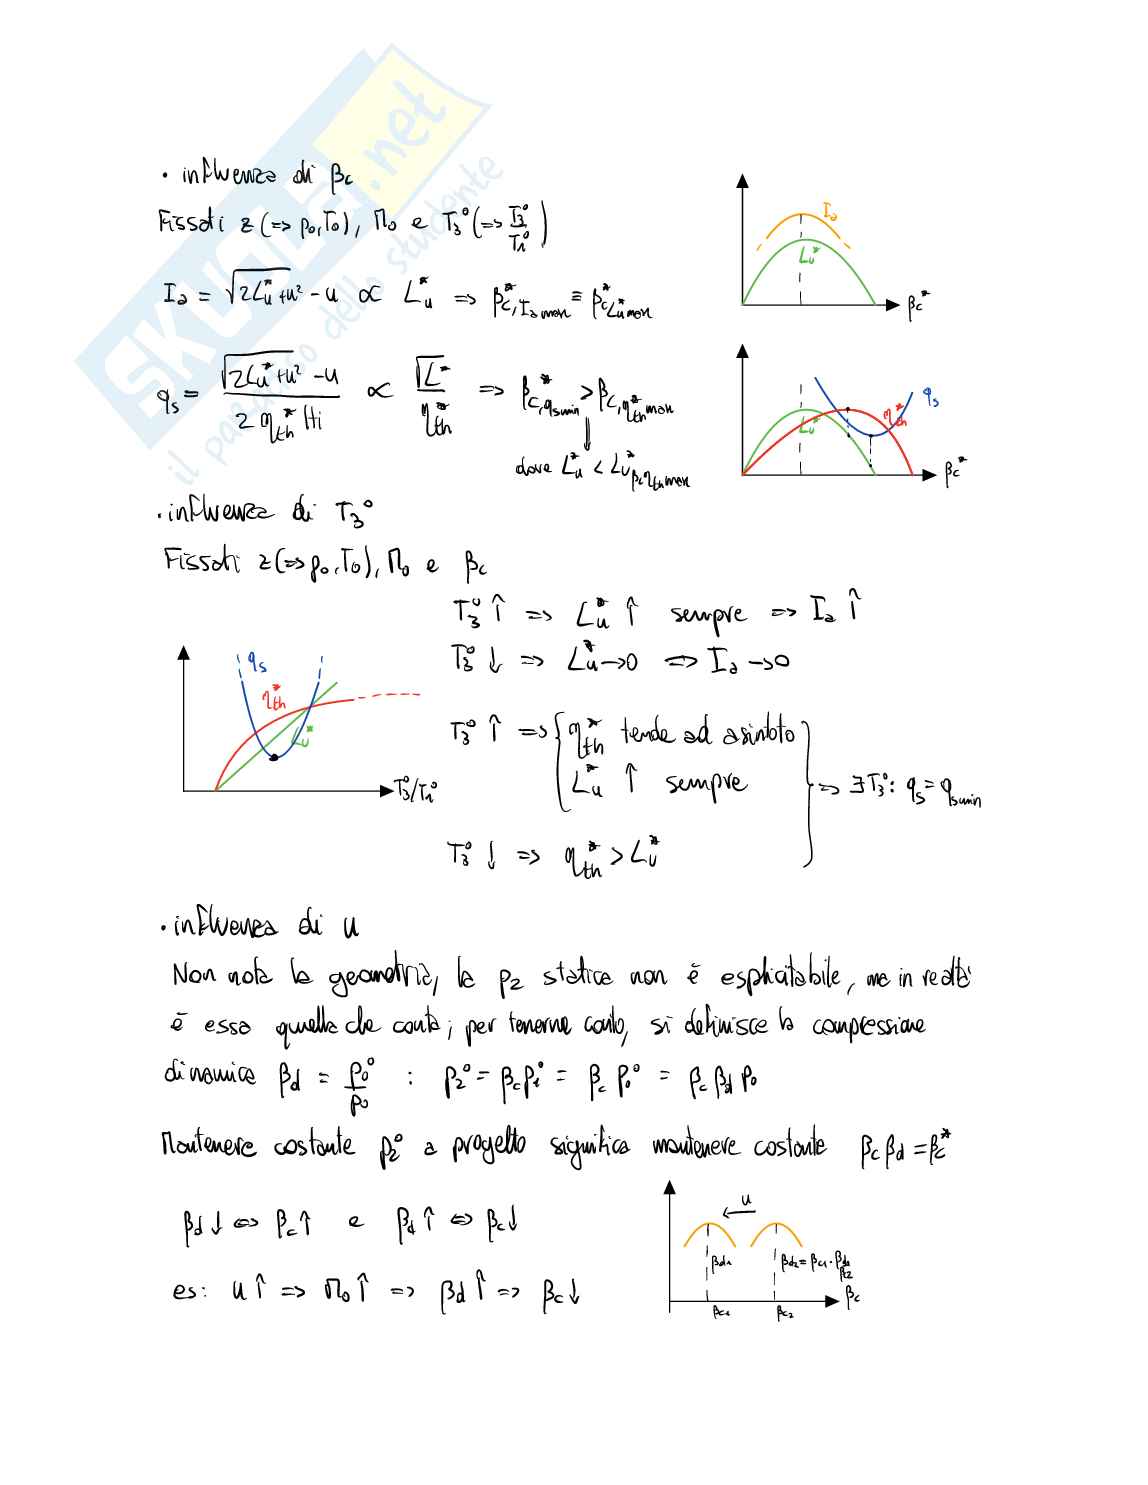 SKUOLA.net
il paradiso dello studente
• influenza di βc
Fissati z (=> p₀, T₀), M₀ e T₃° (=> T₃°/T₁°)
Ia = √(2Lu* + u²) - u ∝ Lu* => βc*,Ia max ≡ βc* Lu* max
qs = (√(2Lu* + u²) - u) / (2 ηth* Hi) ∝ √L* / ηth* => βc*,qs min > βc,ηth* max
dove Lu* < Lu* βc ηth max
Ia
Lu*
βc*
qs
ηth*
Lu*
βc*
• influenza di T₃°
Fissati z (=> p₀, T₀), M₀ e βc
T₃° ↑ => Lu* ↑ sempre => Ia ↑
T₃° ↓ => Lu* → 0 => Ia → 0
T₃° ↑ => { ηth* tende ad asintoto
Lu* ↑ sempre
} => ∃ T₃° : qs = qs min
T₃° ↓ => ηth* > Lu*
qs
ηth*
Lu*
T₃°/T₁°
• influenza di u
Non nota la geometria, la p₂ statica non è esplicitabile, ma in realtà
è essa quella che conta; per tenerne conto, si definisce la compressione
dinamica βd = p₀°/p₀ : p₂° = βc p₁° = βc p₀° = βc βd p₀
Mantenere costante p₂° a progetto significa mantenere costante βc βd = βc*
βd ↓ <=> βc ↑ e βd ↑ <=> βc ↓
es: u ↑ => M₀ ↑ => βd ↑ => βc ↓
u
βd1
βd2 = βc1 · βd1/βc2
βc1
βc2
βc